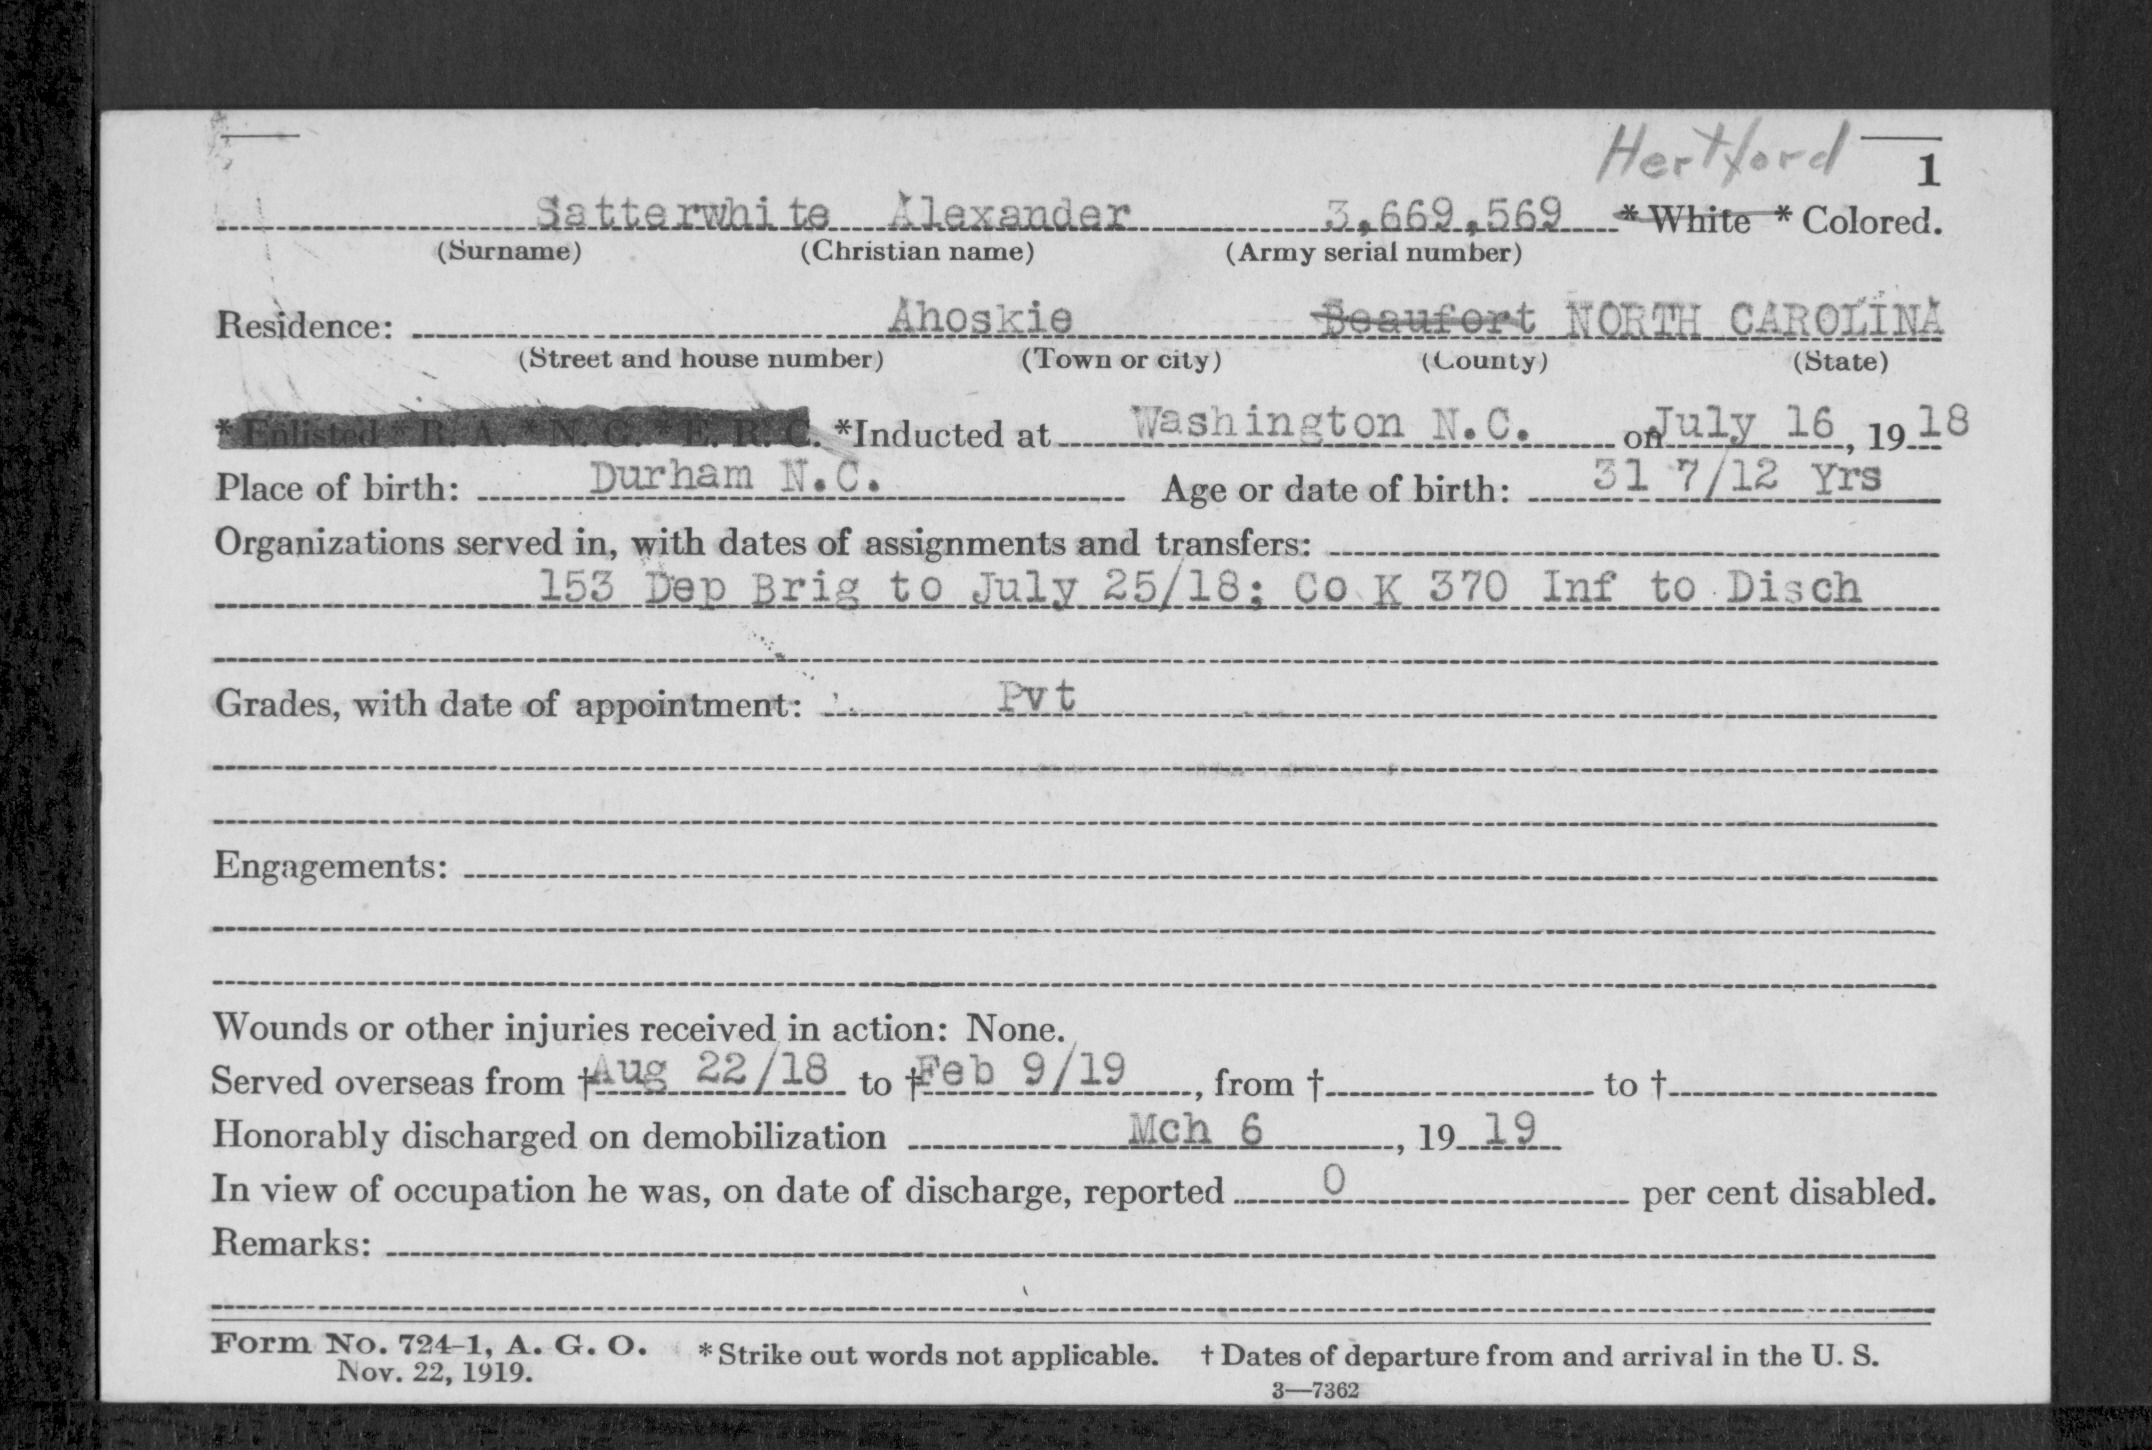 Hertford
1
Satterwhite Alexander 3,669,569 * White * Colored.
(Surname) (Christian name) (Army serial number)
Residence: Ahoskie Beaufort NORTH CAROLINA
(Street and house number) (Town or city) (County) (State)
* Enlisted * R. A. * N. G. * E. R. C. *Inducted at Washington N.C. on July 16, 1918
Place of birth: Durham N.C. Age or date of birth: 31 7/12 Yrs
Organizations served in, with dates of assignments and transfers:
153 Dep Brig to July 25/18; Co K 370 Inf to Disch
Grades, with date of appointment: Pvt
Engagements:
Wounds or other injuries received in action: None.
Served overseas from † Aug 22/18 to † Feb 9/19, from † to †
Honorably discharged on demobilization Mch 6, 1919
In view of occupation he was, on date of discharge, reported 0 per cent disabled.
Remarks:
Form No. 724-1, A. G. O. * Strike out words not applicable. † Dates of departure from and arrival in the U. S.
Nov. 22, 1919.
3—7362